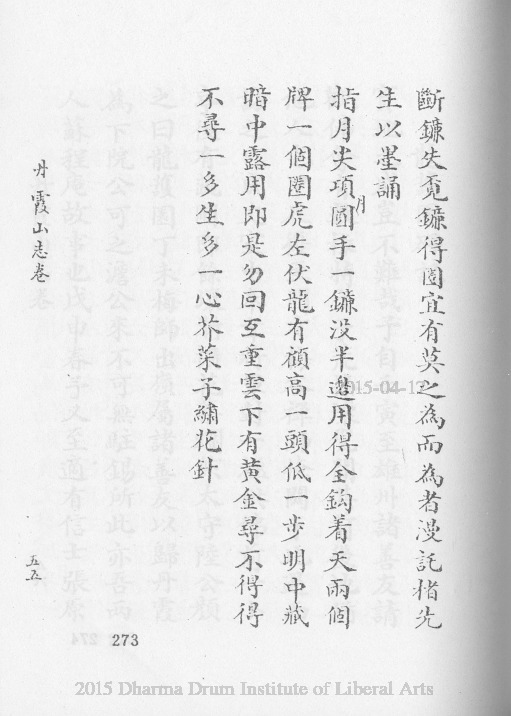 斷鐮失覔鐮得圖宜有莫之為而為者漫託楷先
生以墨誦
指月尖項圓手一鐮没半邊用得全鈎着天兩個
月
牌一個圈虎左伏龍有顧高一頭低一步明中藏
暗中露用即是勿回互重雲下有黄金尋不得得
不尋一多生多一心芥菜子繡花針
丹霞山志卷
五五
273
2015-04-17
2015 Dharma Drum Institute of Liberal Arts